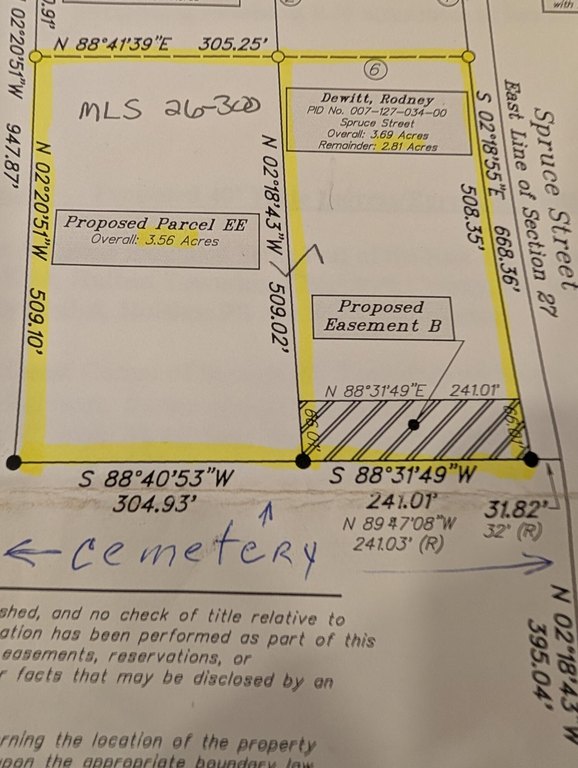 with
0.91'
N 02°20'51"W 947.87'
N 88°41'39"E 305.25'
6
MLS 26-300
Dewitt, Rodney
PID No. 007-127-034-00
Spruce Street
Overall: 3.69 Acres
Remainder: 2.81 Acres
Spruce Street
East Line of Section 27
S 02°18'55"E 668.36'
508.35'
N 02°20'51"W 509.10'
N 02°18'43"W 509.02'
Proposed Parcel EE
Overall: 3.56 Acres
Proposed
Easement B
N 88°31'49"E 241.01'
66.01'
66.01'
S 88°40'53"W
304.93'
S 88°31'49"W
241.01'
N 89°47'08"W
241.03' (R)
31.82'
32' (R)
← Cemetery
N 02°18'43"W
395.04'
shed, and no check of title relative to
ation has been performed as part of this
easements, reservations, or
r facts that may be disclosed by an
rning the location of the property
upon the appropriate boundary law